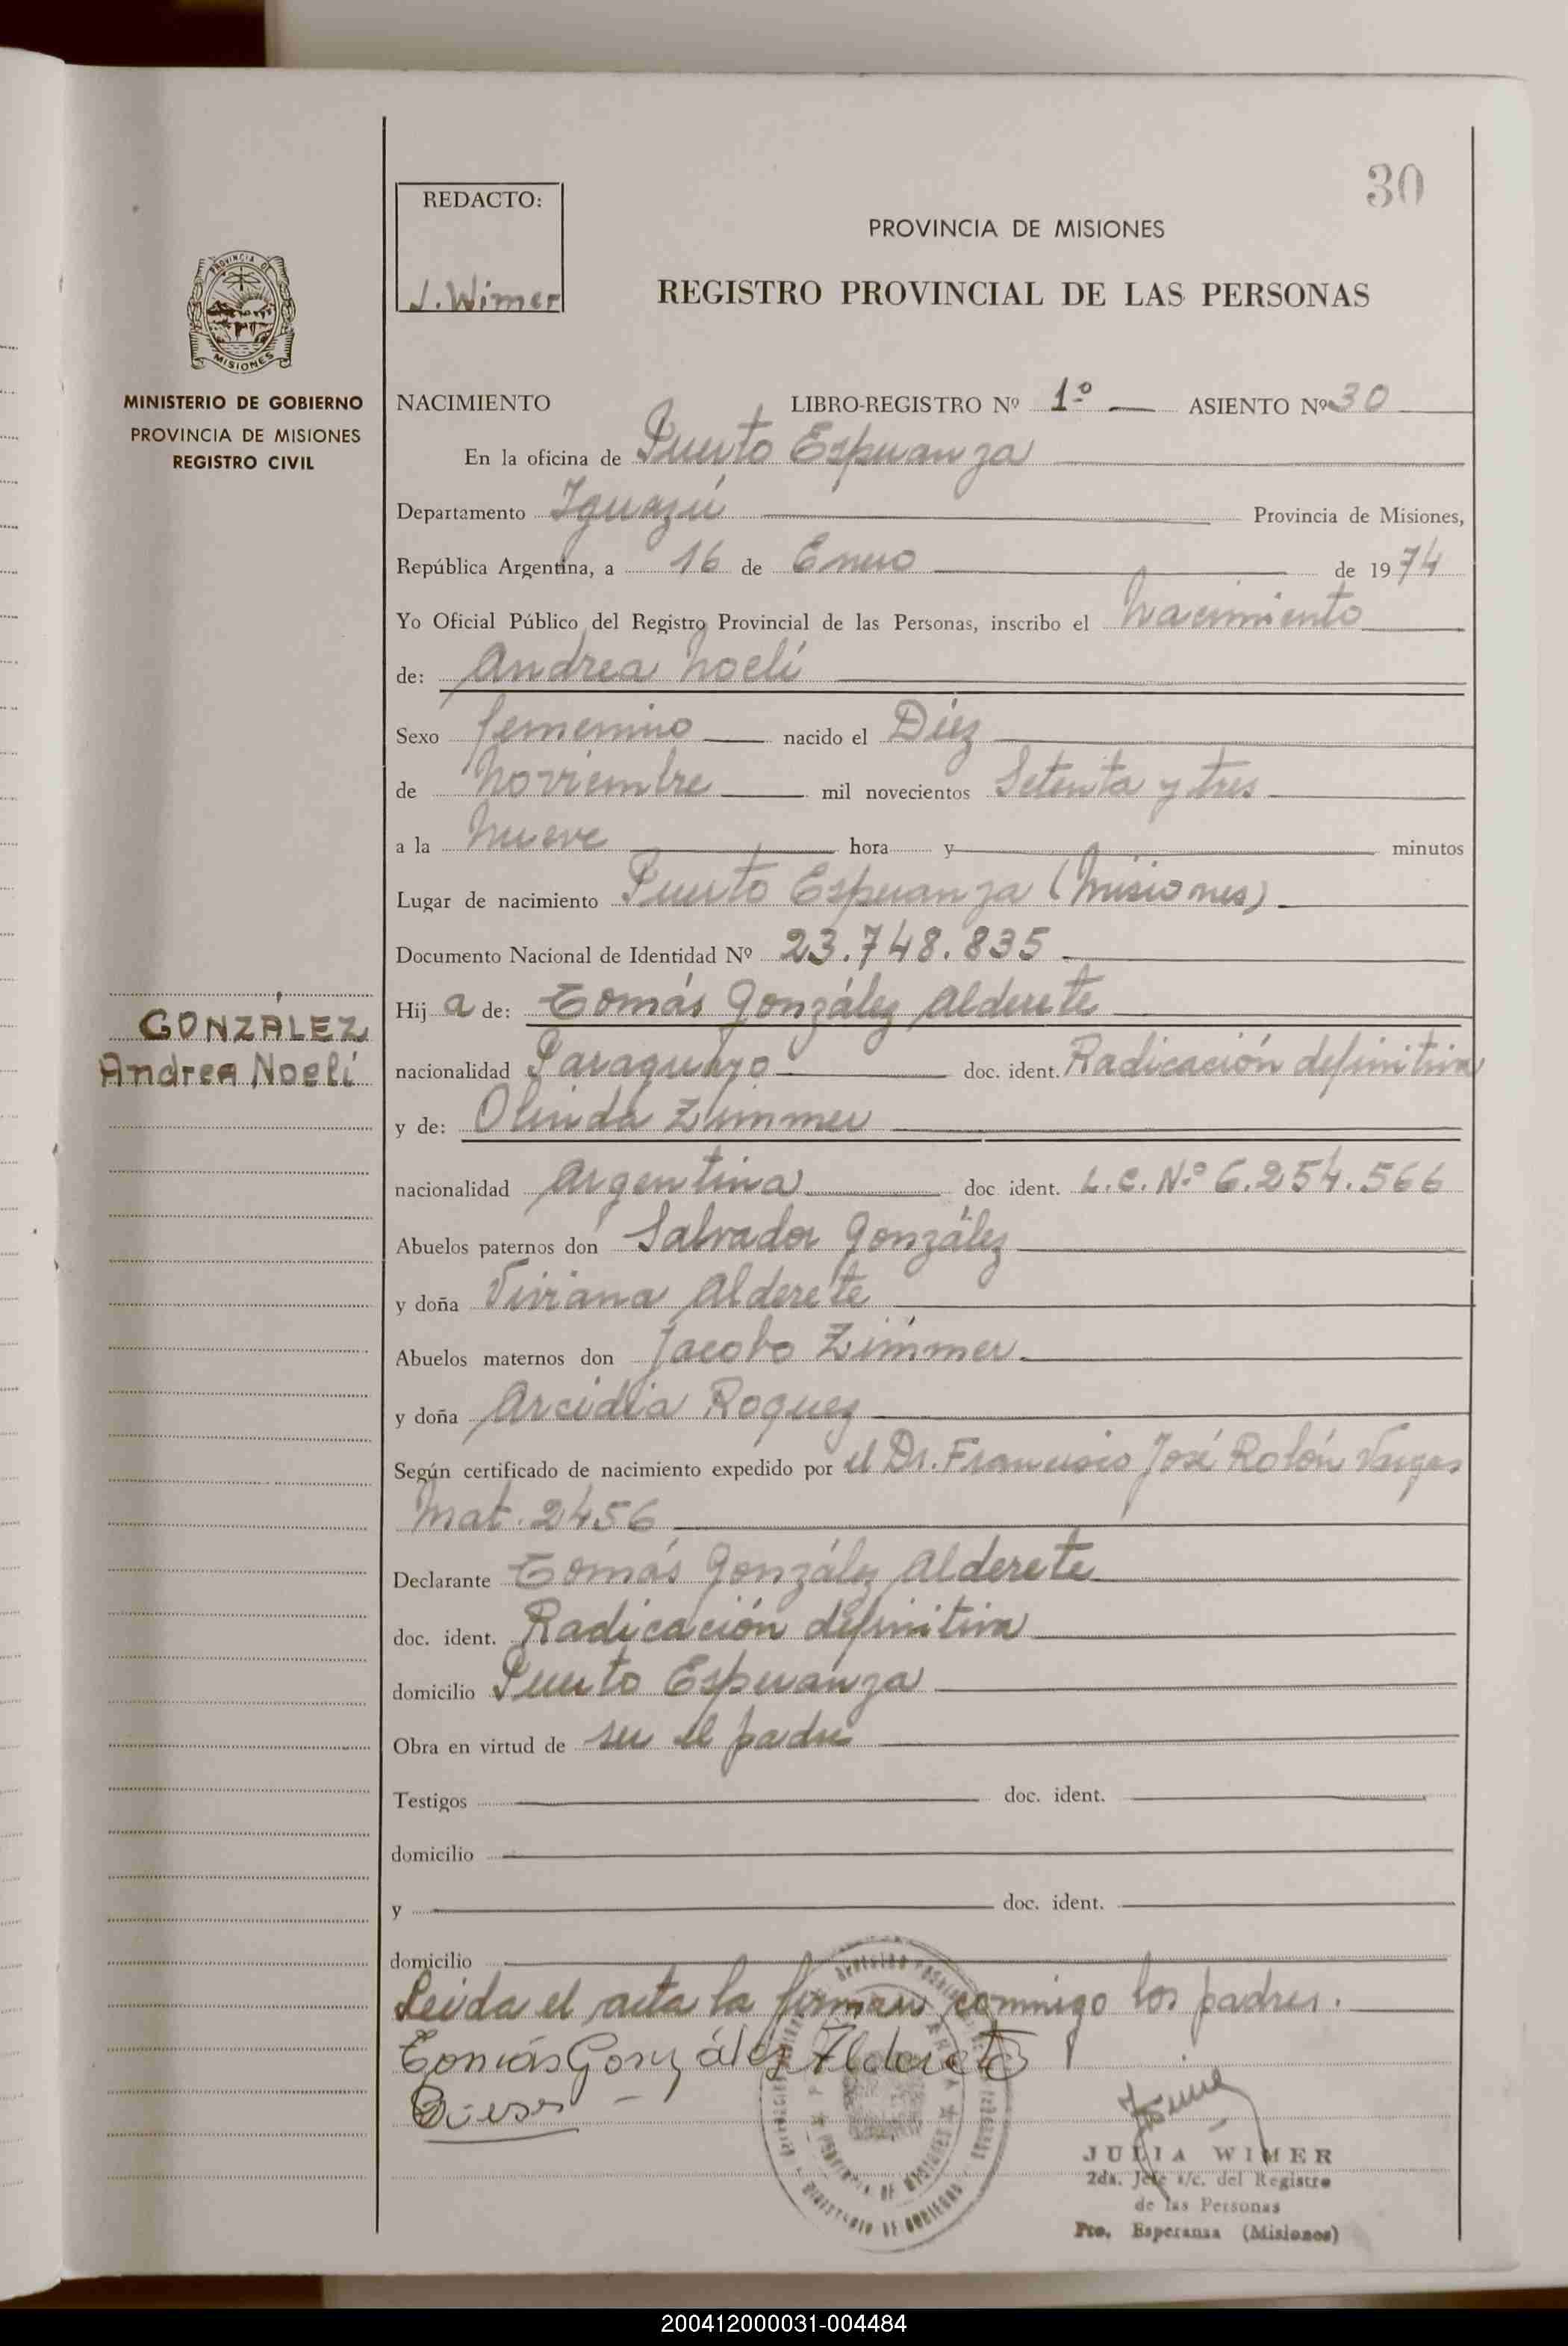 30
REDACTO:
J. Wimer
PROVINCIA DE MISIONES
REGISTRO PROVINCIAL DE LAS PERSONAS
PROVINCIA DE
MISIONES
MINISTERIO DE GOBIERNO
PROVINCIA DE MISIONES
REGISTRO CIVIL
NACIMIENTO LIBRO-REGISTRO Nº 1º ASIENTO Nº 30
En la oficina de Puerto Esperanza
Departamento Iguazú Provincia de Misiones,
República Argentina, a 16 de Enero de 1974
Yo Oficial Público del Registro Provincial de las Personas, inscribo el Nacimiento
de: Andrea Noelí
Sexo femenino nacido el Diez
de Noviembre mil novecientos Setenta y tres
a la Nueve hora y minutos
Lugar de nacimiento Puerto Esperanza (Misiones)
Documento Nacional de Identidad Nº 23.748.835
Hija de: Tomás González Alderete
GONZÁLEZ
Andrea Noelí
nacionalidad Paraguayo doc. ident. Radicación definitiva
y de: Olinda Zimmer
nacionalidad Argentina doc. ident. L.C. Nº 6.254.566
Abuelos paternos don Salvador González
y doña Viviana Alderete
Abuelos maternos don Jacobo Zimmer
y doña Arcidia Roquez
Según certificado de nacimiento expedido por el Dr. Francisco José Rolón Vargas
Mat. 2456
Declarante Tomás González Alderete
doc. ident. Radicación definitiva
domicilio Puerto Esperanza
Obra en virtud de ser el padre
Testigos doc. ident.
domicilio
y doc. ident.
domicilio
Leida el acta la firman conmigo los padres.
Tomás González Alderete
JULIA WIMER
2da. Jefe s/c. del Registro
de las Personas
Pto. Esperanza (Misiones)
200412000031-004484